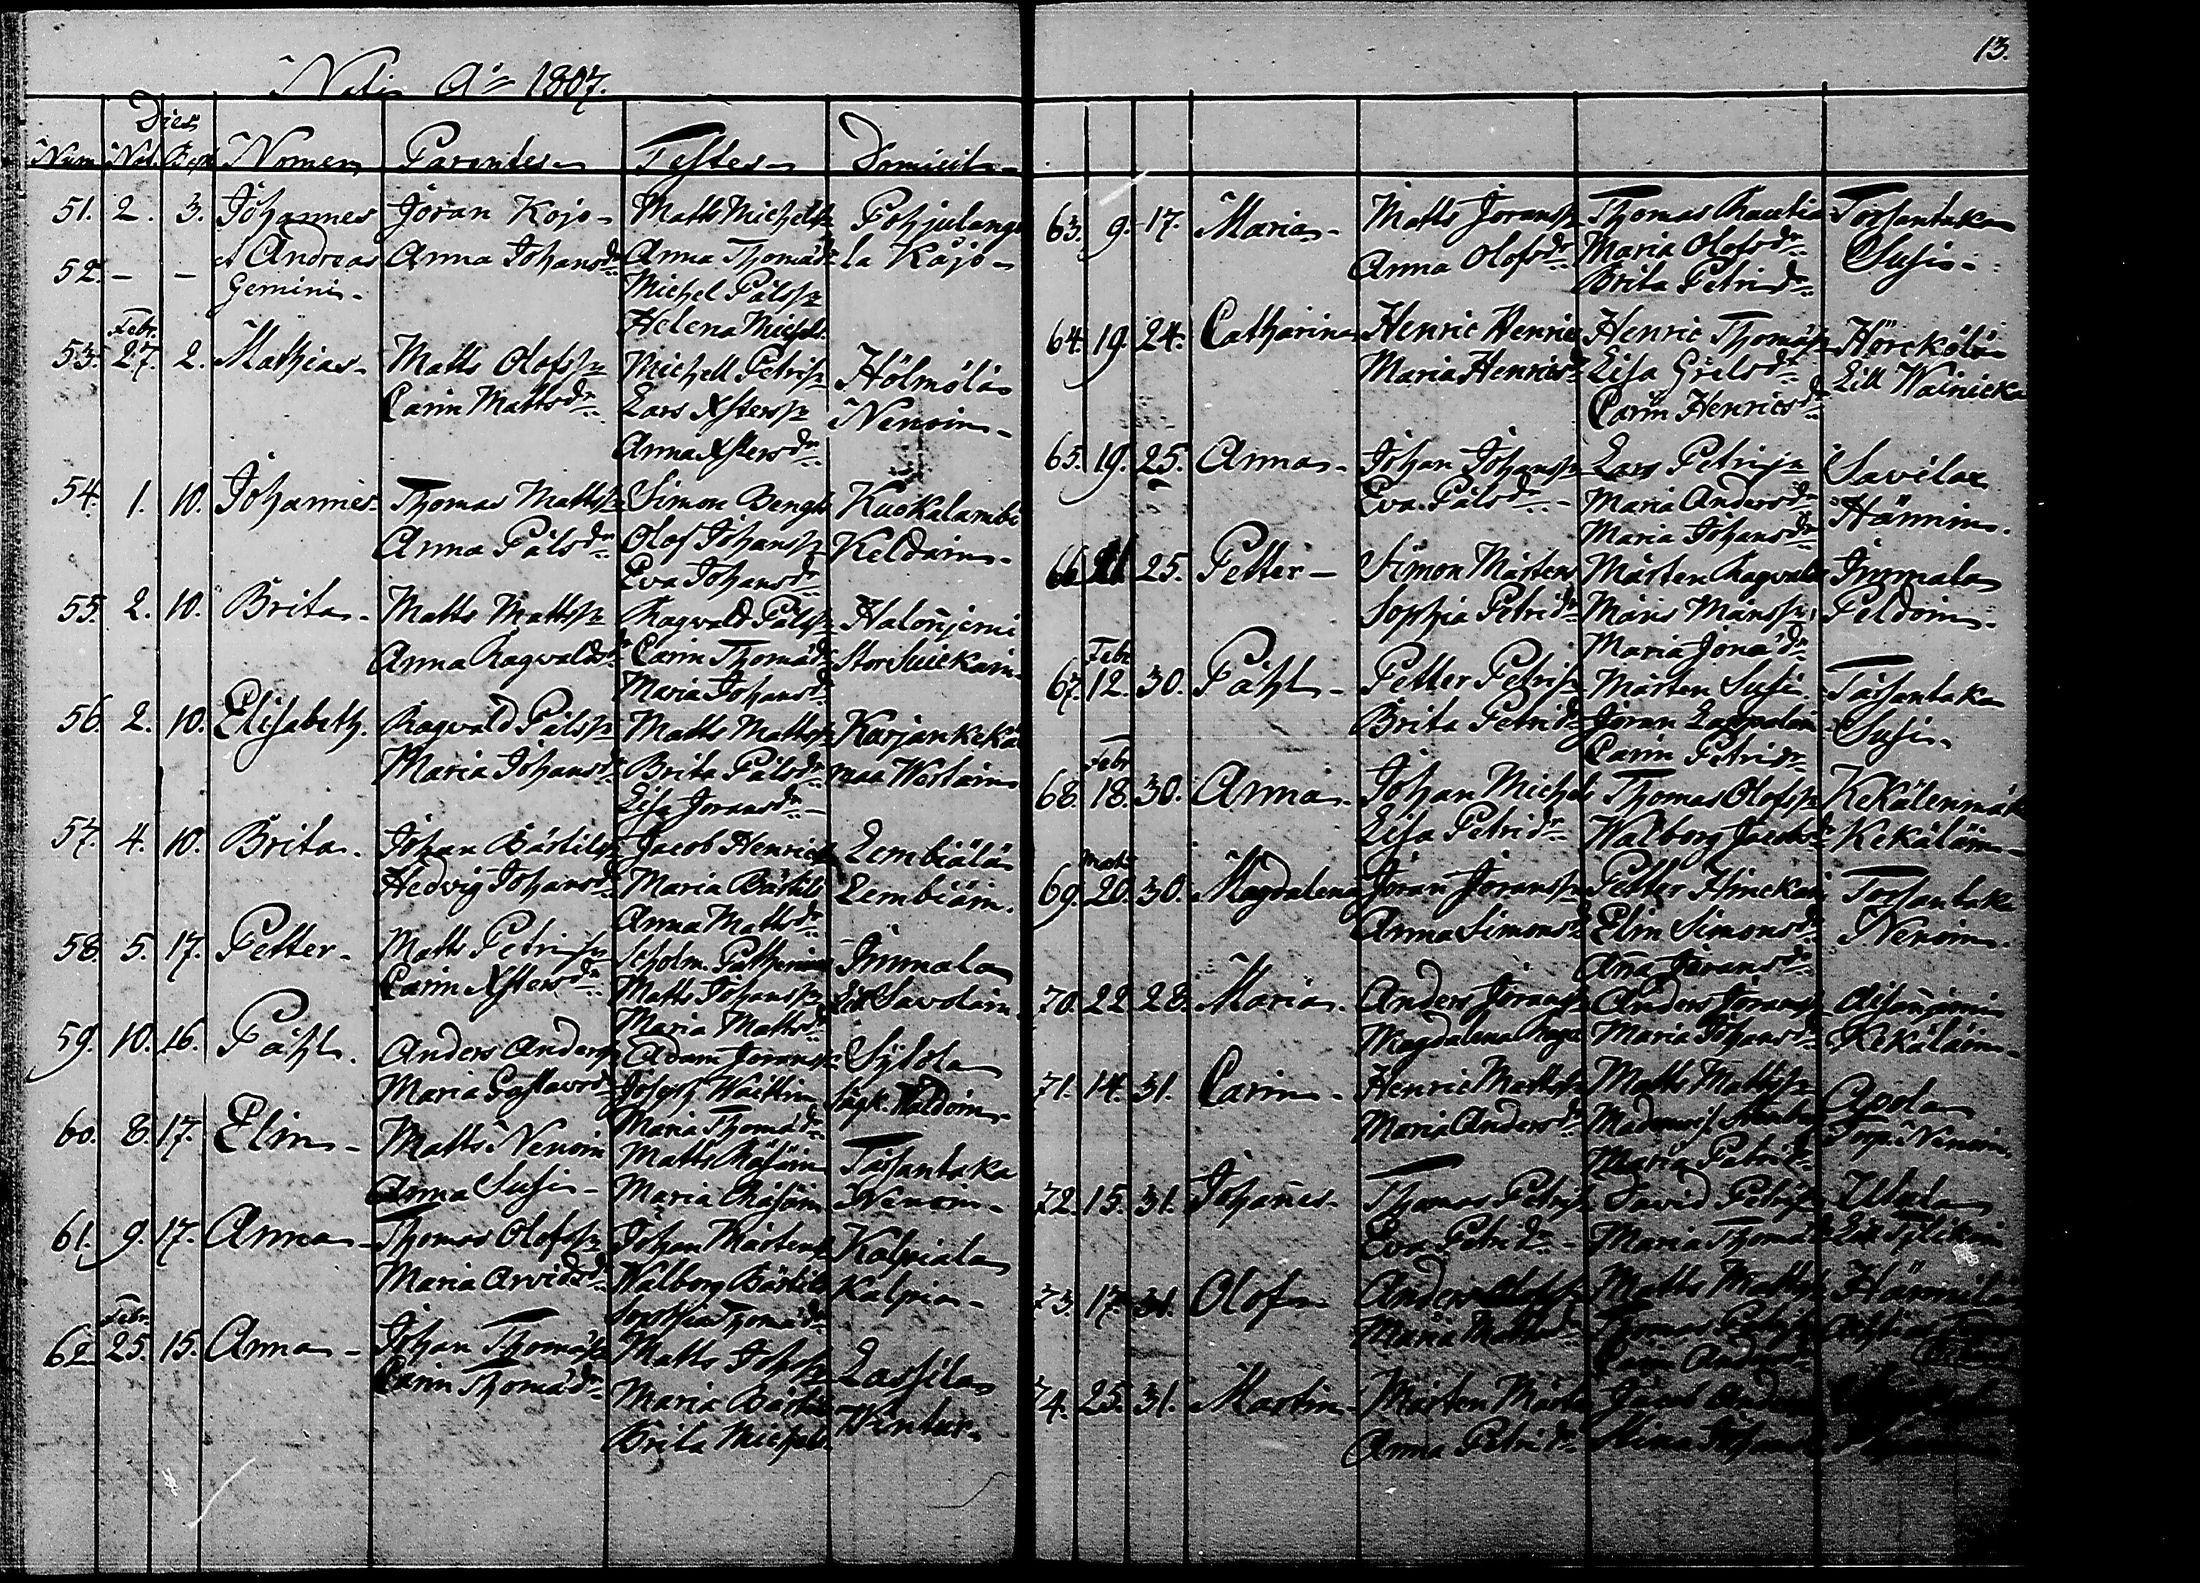 Nati Aō 1807.
Dies
Num. Nat. Bapt. Nomen Parentes Testes Domicil.
51. 2. 3. Johannes Jöran Kojo Matts Michelsn Pohjulange
52. – – et Andreas Anna Johansdr Anna Thomædr la Kåjo
Gemini. Michel Pålssn
Helena Michels.
Febr.
53. 27. 2. Mathias Matts Olofssn Michell Petrissn Hölmölä
Carin Mattsdr Lars Xsterssn Nenoin
Anna Xstersdr
54. 1. 10. Johannes Thomas Mattssn Simon Bengts Kuokalambi
Anna Pålsdr Olof Johanssn Keldoin
Eva Johansdr
55. 2. 10. Brita Matts Mattssn Ragvald Pålssn Halonjemi
Anna Ragvaldsdr Carin Thomædr Stor Suickain
Maria Johansdr
56. 2. 10. Elisabeth. Ragvald Pålssn Matts Mattssn Karjankekä
Maria Johansdr Brita Pålsdr maa
Lisa Joransdr
57. 4. 10. Brita Johan Bärtilssn Jacob Henricssn Lembiälä
Hedvig Johansdr Maria Bärtils Lembiäin.
Anna Mattsdr
58. 5. 17. Petter Matts Petrissn Immala
Carin Xstersdr Matts Johanssn Lill Savolain
Maria Mattsdr
59. 10. 16. Påhl. Anders Anderssn Adam Joranssn Sylola
Maria Gustavsdr Joseph
Maria Thomædr
60. 8. 17. Elin Matts Nenoin Matts Räsäin Tarsantaka
Anna Susi Maria Räsäin Nenoin
61. 9. 17. Anna Thomas Olofssn Johan Mårtenssn Kalpiala
Maria Arvidsdr Walborg Bärtils Kalpia
Sophia Thomædr
Febr.
62. 25. 15. Anna Johan Thomæsn Matts Johssn Lassila
Carin Thomædr Maria Bärtils Wentur
Brita Michels.
13.
63. 9. 17. Maria Matts Joranssn Thomas Rautia Torsantaka
Anna Olofsdr Maria Olofsdr Susi
Brita Petridr
64. 19. 24. Catharina Henric Henrics Henric Thomæsn Hörckölä
Maria Henricsdr Lisa Grelsdr Lill Wainicka
Carin Henricsdr
65. 19. 25. Anna Johan Johanssn Lars Petrissn Savilax
Eva Pålsdr Maria Andersdr Hännin.
Maria Johansdr
66. 21 25. Petter Simon Mårtens Mårten Ragvalds Immala
Sophia Petridr Måns Månssn Peldoin
Maria Jonædr
Febr.
67. 12. 30. Påhl Petter Petrissn Mårten Susi Tarsantaka
Brita Petridr Jöran Lappalain Susi
Carin Petridr
Febr.
68. 18. 30. Anna Johan Michels Thomas Olofssn Kekälenmäk
Lisa Petridr Walborg Jacobsdr Kekäläin
Mart.
69. 20. 30. Magdalena Jöran Joranssn Petter Hinckain Torsantaka
Anna Simonsdr Elin Simonsdr Nenoin
Anna Joransdr
70. 22. 28. Maria Anders Joranssn Anders Joranssn
Magdalena Maria Johansdr Kekäläin
71. 14. 31. Carin Henric Mattssn Matts Mattssn Apola
Maria Andersdr
Maria Petridr
72. 15. 31. Johannes Thomas Petrissn David Petrissn Utula
Eva Petridr Maria Thomædr
73. 17. 31. Olof Anders Olofssn Matts Mattssn Hännilä
Maria Mattsdr Thomas Petrissn
Carin Andersdr
74. 25. 31. Martin Mårten Mårtens Jacob Anders
Anna Petridr Stina Johansdr